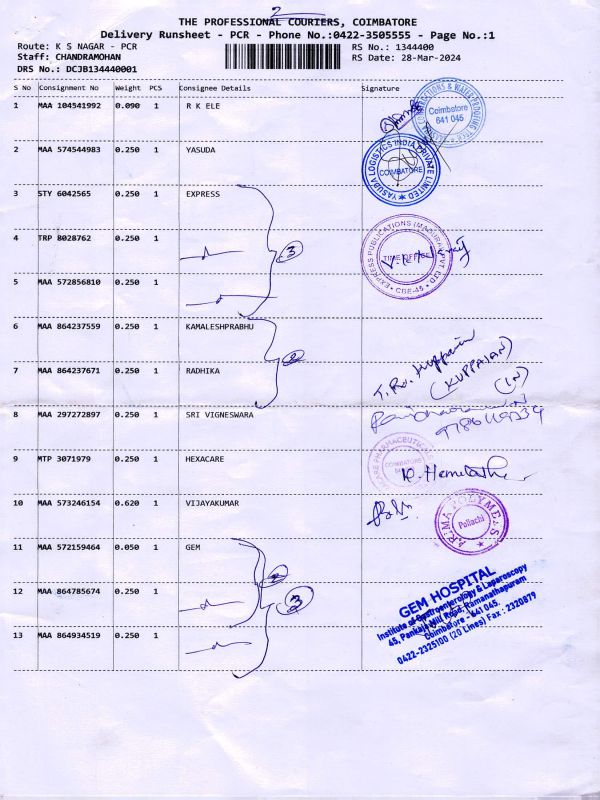 2
THE PROFESSIONAL COURIERS, COIMBATORE
Delivery Runsheet - PCR - Phone No.:0422-3505555 - Page No.:1
Route: K S NAGAR - PCR RS No.: 1344400
Staff: CHANDRAMOHAN RS Date: 28-Mar-2024
DRS No.: DCJB134440001
S No Consignment No Weight PCS Consignee Details Signature
1 MAA 104541992 0.090 1 R K ELE
Coimbatore
641 045
2 MAA 574544983 0.250 1 YASUDA
YASUDA LOGISTICS INDIA PRIVATE LIMITED
COIMBATORE
3 STY 6042565 0.250 1 EXPRESS
EXPRESS PUBLICATIONS (MADURAI) PVT LTD
TIME OFFICE
CBE-45
4 TRP 8028762 0.250 1
3
5 MAA 572856810 0.250 1
6 MAA 864237559 0.250 1 KAMALESHPRABHU
2
7 MAA 864237671 0.250 1 RADHIKA
(KUPPAIAN)
(IN)
8 MAA 297272897 0.250 1 SRI VIGNESWARA
9 MTP 3071979 0.250 1 HEXACARE
PHARMACEUTICALS
COIMBATORE
K. Hemalatha
10 MAA 573246154 0.620 1 VIJAYAKUMAR
PRIMA POLYMERS
Pollachi
11 MAA 572159464 0.050 1 GEM
12 MAA 864785674 0.250 1
3
13 MAA 864934519 0.250 1
GEM HOSPITAL
Institute of Gastroenterology & Laparoscopy
45, Pankaja Mill Road, Ramanathapuram
Coimbatore - 641 045.
0422-2325100 (20 Lines) Fax : 2320879